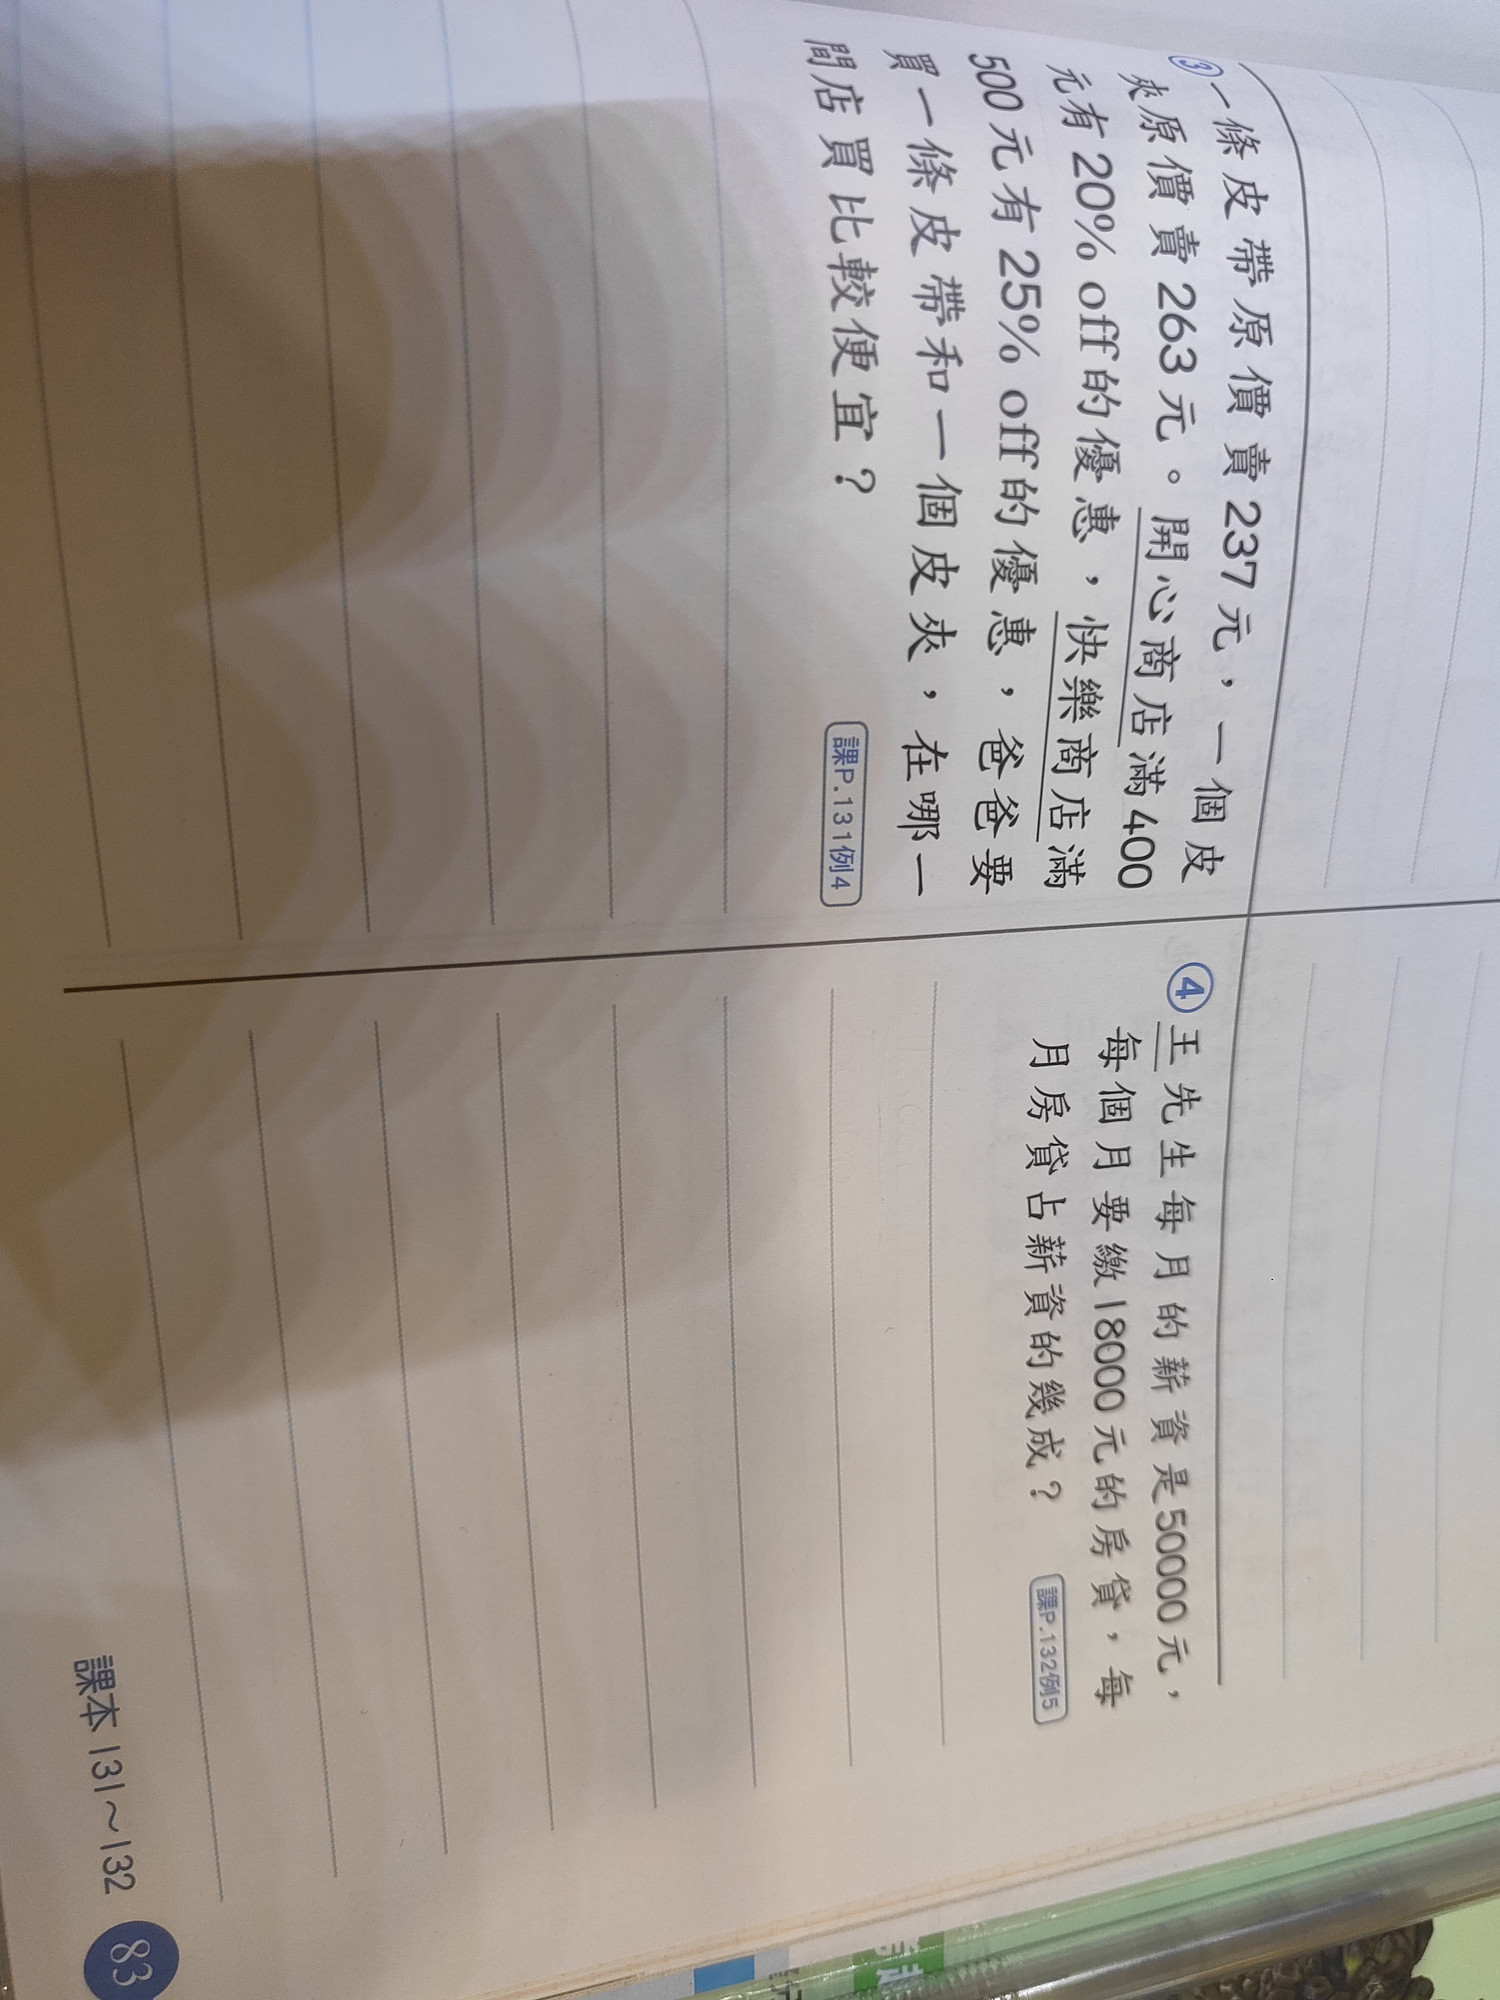 ③一條皮帶原價賣237元，一個皮
夾原價賣263元。開心商店滿400
元有20% off的優惠，快樂商店滿
500元有25% off的優惠，爸爸要
買一條皮帶和一個皮夾，在哪一
間店買比較便宜？
課P.131例4
④王先生每月的薪資是50000元，
每個月要繳18000元的房貸，每
月房貸占薪資的幾成？
課P.132例5
課本131～132
83